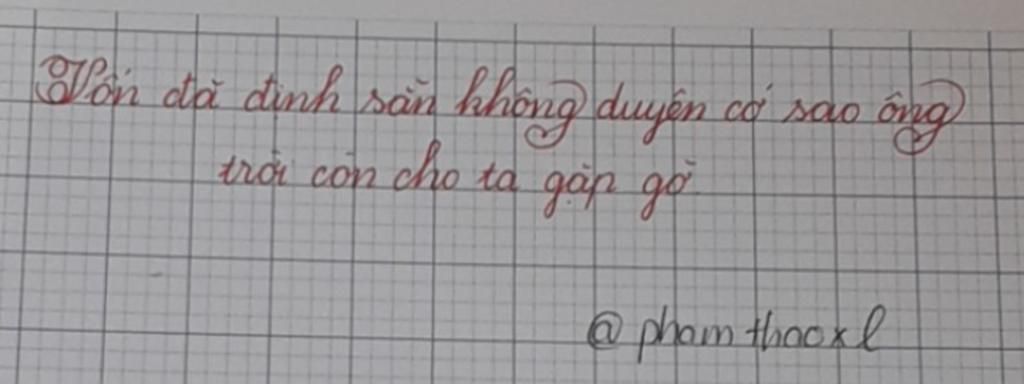 Vốn đã định sẵn không duyên cớ sao ông
trời còn cho ta gặp gỡ
@phamthaoxl